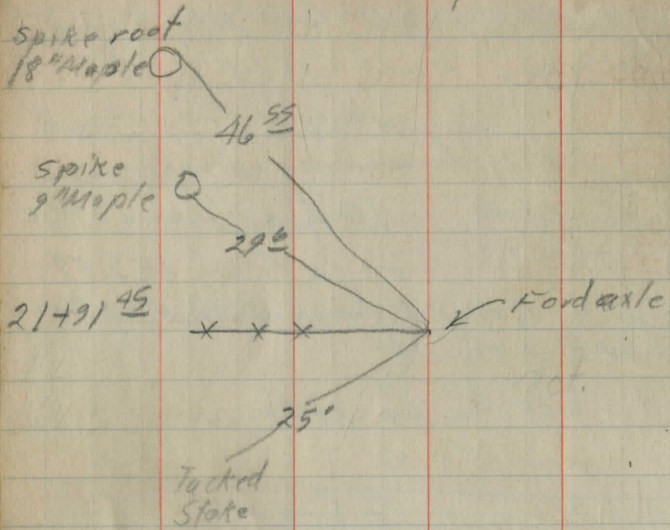 Spike root
18" Maple
46 55
Spike
9" Maple
29 6
21+91 45
Ford axle
25°
Tacked
Stake